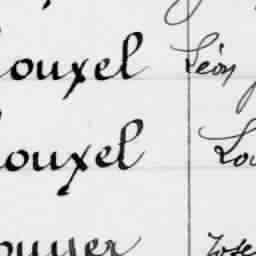 ouxel Léon
ouxel Lou
ouyer Jose